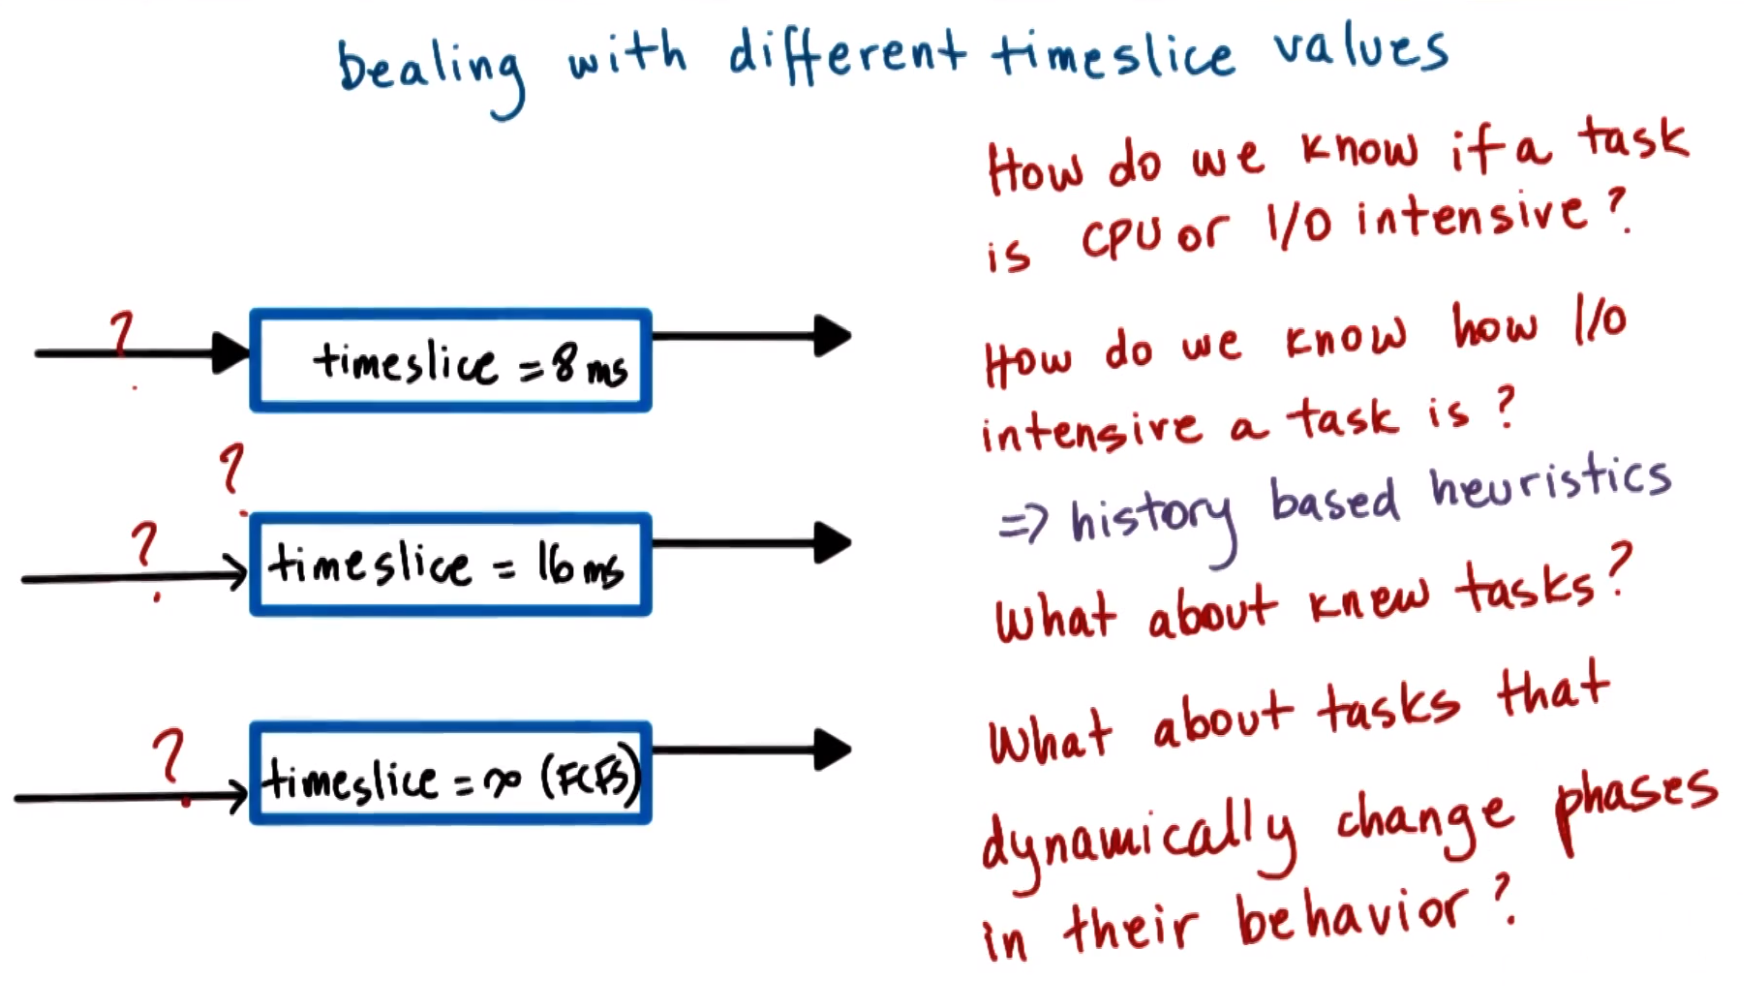 Dealing with different timeslice values
?
timeslice = 8 ms
?
?
timeslice = 16 ms
?
timeslice = ∞ (FCFS)
How do we know if a task
is CPU or I/O intensive?
How do we know how I/O
intensive a task is?
=> history based heuristics
What about knew tasks?
What about tasks that
dynamically change phases
in their behavior?